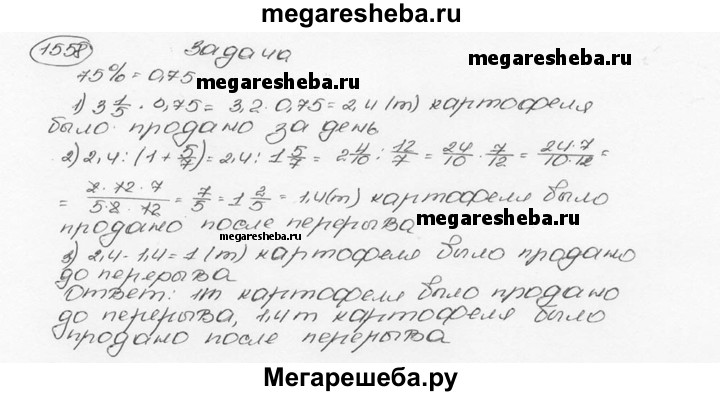 megaresheba.ru
1558 Задача
75% = 0,75
megaresheba.ru
1) 3 1/5 · 0,75 = 3,2 · 0,75 = 2,4 (т) картофеля
было продано за день
2) 2,4 : (1 + 5/7) = 2,4 : 1 5/7 = 2 4/10 : 12/7 = 24/10 · 7/12 = 24·7/10·12 =
= 2·12·7/5·2·12 = 7/5 = 1 2/5 = 1,4 (т) картофеля было
продано после перерыва
megaresheba.ru
megaresheba.ru
3) 2,4 - 1,4 = 1 (т) картофеля было продано
до перерыва
Ответ: 1т картофеля было продано
до перерыва, 1,4 т картофеля было
продано после перерыва
Мегарешеба.ру